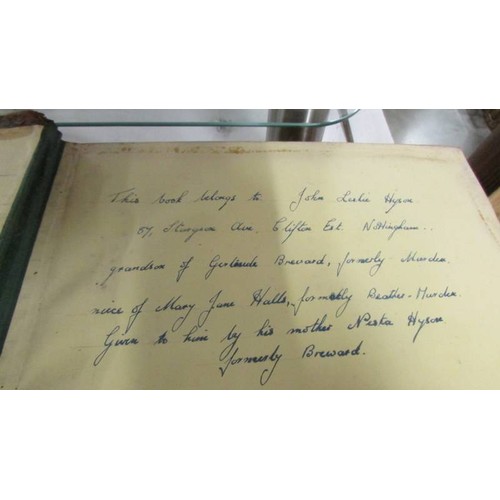 This book belongs to John Leslie Hyson
57, Sturgeon Ave, Clifton Est. Nottingham..
grandson of Gertrude Breward, formerly Marden.
niece of Mary Jane Halls, formerly Deather-Murden.
Given to him by his mother Neska Hyson
formerly Breward.